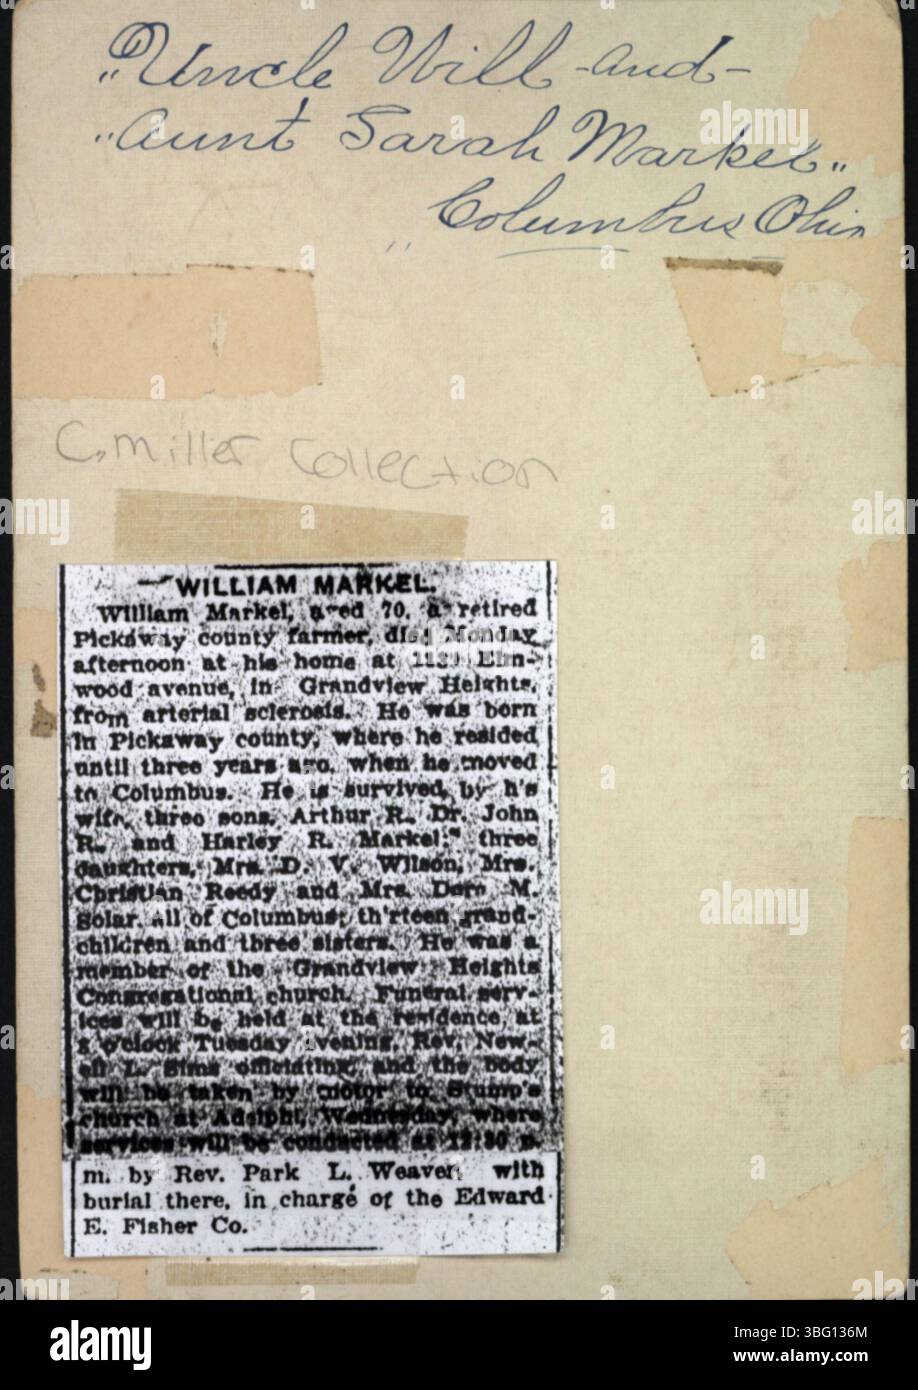 "Uncle Will -and-
"Aunt Sarah Markel"
" Columbus Ohio
C. Miller Collection
WILLIAM MARKEL.
William Markel, aged 70, a retired
Pickaway county farmer, died Monday
afternoon at his home at Elm-
wood avenue, in Grandview Heights,
from arterial sclerosis. He was born
in Pickaway county, where he resided
until three years ago, when he moved
to Columbus. He is survived by h's
wife, three sons, Arthur R., Dr. John
R. and Harley R. Markel; three
daughters, Mrs. D. V. Wilson, Mrs.
Christian Reedy and Mrs. M.
Solar, all of Columbus; th'rteen grand-
children and three sisters. He was a
member of the Grandview Heights
Congregational church. Funeral serv-
ices will be held at the residence at
8 o'clock Tuesday evening, Rev. New-
ell L. Sims officiating, and the body
will be taken by motor to Stump's
church at Adelphi, Wednesday, where
services will be conducted at 12:30 p.
m. by Rev. Park L. Weaver, with
burial there, in charge of the Edward
E. Fisher Co.
alamy
Image ID: 3BG136M
www.alamy.com